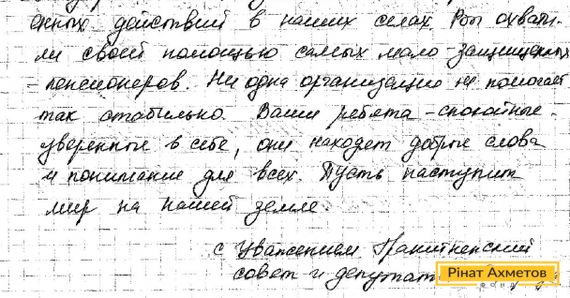 енных действий в наших селах. Вы охвати-
ли своей помощью самых мало защищенных
- пенсионеров. Ни одна организация не помогает
так стабильно. Ваши ребята - спокойные,
уверенные в себе, они находят добрые слова
и понимание для всех. Пусть наступит
мир на нашей земле.
с Уважением Гранитненский
совет и депутат
Рінат Ахметов
фонд